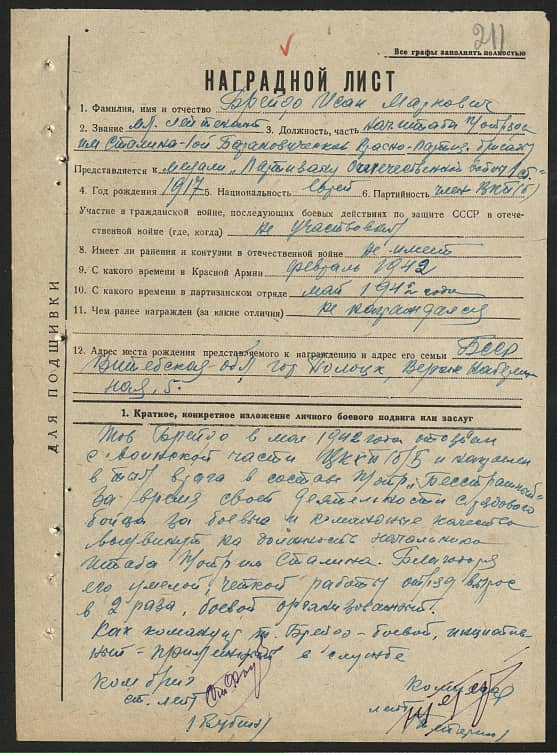 211
Все графы заполнять полностью
НАГРАДНОЙ ЛИСТ
1. Фамилия, имя и отчество Брейдо Исак Маркович
2. Звание мл. лейтенант 3. Должность, часть начштаба п/отр 
им Сталина 1ой Барановической бригады
Представляется к медали „Партизану Отечественной войны"
4. Год рождения 1917 5. Национальность еврей 6. Партийность член ВКП(б)
Участие в гражданской войне, последующих боевых действиях по защите СССР в отече-
ственной войне (где, когда) не участвовал
8. Имеет ли ранения и контузии в отечественной войне не имеет
9. С какого времени в Красной Армии февраль 1942
10. С какого времени в партизанском отряде май 1942 года
11. Чем ранее награжден (за какие отличия) не награждался
12. Адрес места рождения представляемого к награждению и адрес его семьи Бсср
Витебская обл гор Полоцк,
ная, 5.
ДЛЯ ПОДШИВКИ
1. Краткое, конкретное изложение личного боевого подвига или заслуг
Тов Брейдо в мае 1942 года отозван
с воинской части ЦККП(б)Б и направлен
в тыл врага в составе п/отр „Бесстрашный"
За время своей деятельности с рядового
бойца за боевые и командные качества
выдвинут на должность начальника
штаба п/отр им Сталина. Благодаря
его умелой, четкой работы отряд вырос
в 2 раза, боевой организованный.
Как командир т. Брейдо - боевой, инициатив
ный - в службе
Комбриг
ст. лейт
лейт